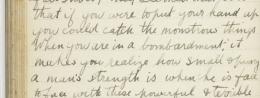 that if you were to put your hand up
you could catch the monstrous things
When you are in a bombardment, it
makes you realize how small & puny
a man's strength is when he is face
to face with these powerful & terrible